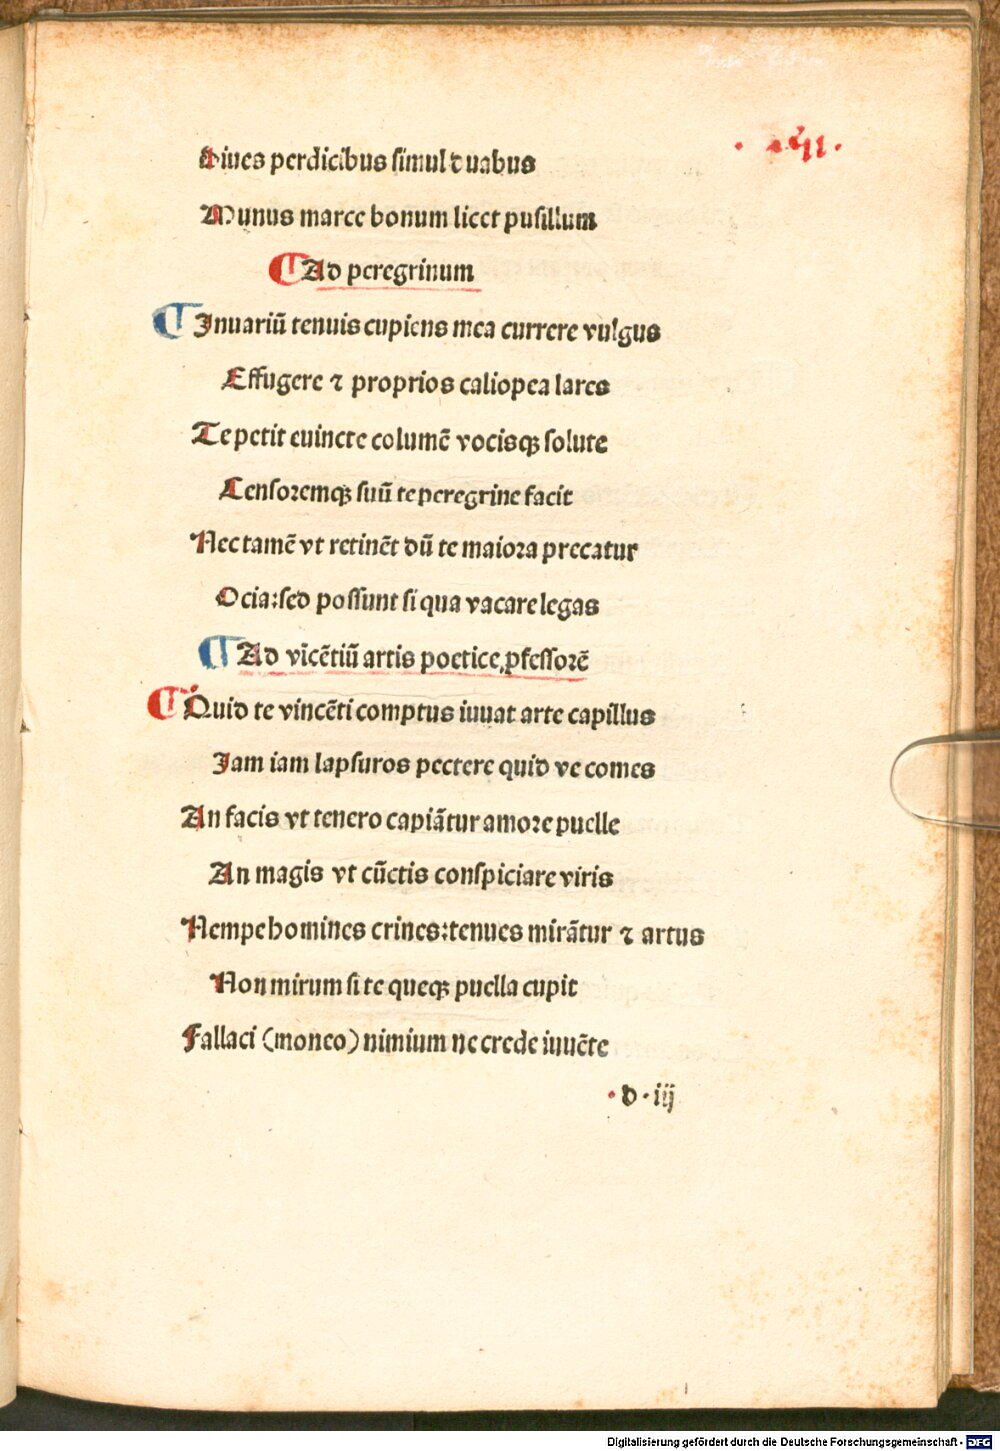 Diues perdicibus simul duabus
Munus marce bonum licet pusillum
Ad peregrinum
Inuariū tenuis cupiens mea currere vulgus
Effugere ⁊ proprios caliopea lares
Te petit euincte columē vocisqꝫ solute
Censoremqꝫ suū te peregrine facit
Nec tamē vt retinēt dū te maiora precatur
Ocia:sed possunt si qua vacare legas
Ad vīcētiū artis poetice ꝓfessorē
Quid te vincēti comptus iuuat arte capillus
Jam iam lapsuros pectere quid ve comes
An facis vt tenero capiātur amore puelle
An magis vt cūctis conspiciare viris
Nempe homines crines:tenues mirātur ⁊ artus
Non mirum si te queqꝫ puella cupit
Fallaci (moneo) nimium ne crede iuuēte
·d·iij
Digitalisierung gefördert durch die Deutsche Forschungsgemeinschaft - DFG